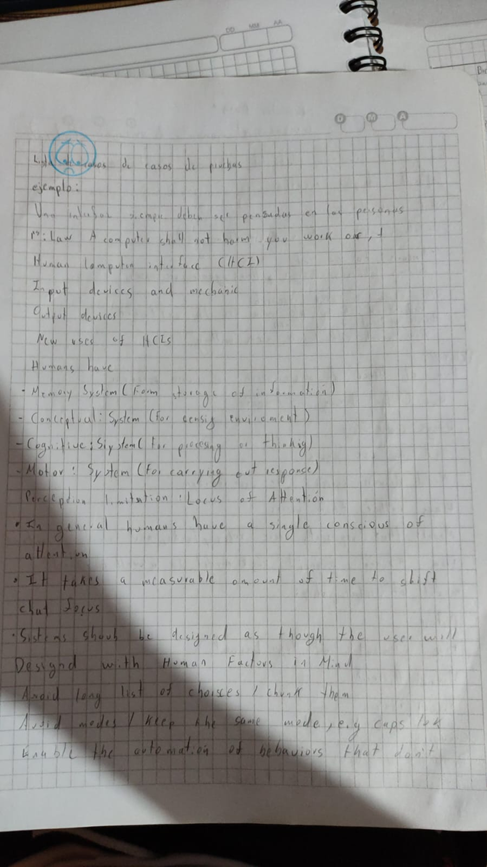 de casos de pruebas
ejemplo:
siempre deben ser pensadas en las personas
Law A computer shall not harm you work or,
Human Computer interface (HCI)
Input devises and mechanic
Output devices
New uses of HCIs
Humans have
- Memory System (Form storage of information)
- Conceptual: System (for sensig enviroment)
- Cognitive: System (for processing or thinking)
- Motor: System (for carrying out response)
Perception limitation: Locus of Attention
• In general humans have a single conscious of
attention
• It takes a measurable amount of time to shift
focus
• Sistems should be designed as though the user will
Designd with Human Factors in Mind
Avoid long list of choises / chunk them
Avoid modes / keep the same mode, e.g caps lock
Enable the automation of behaviors that don't